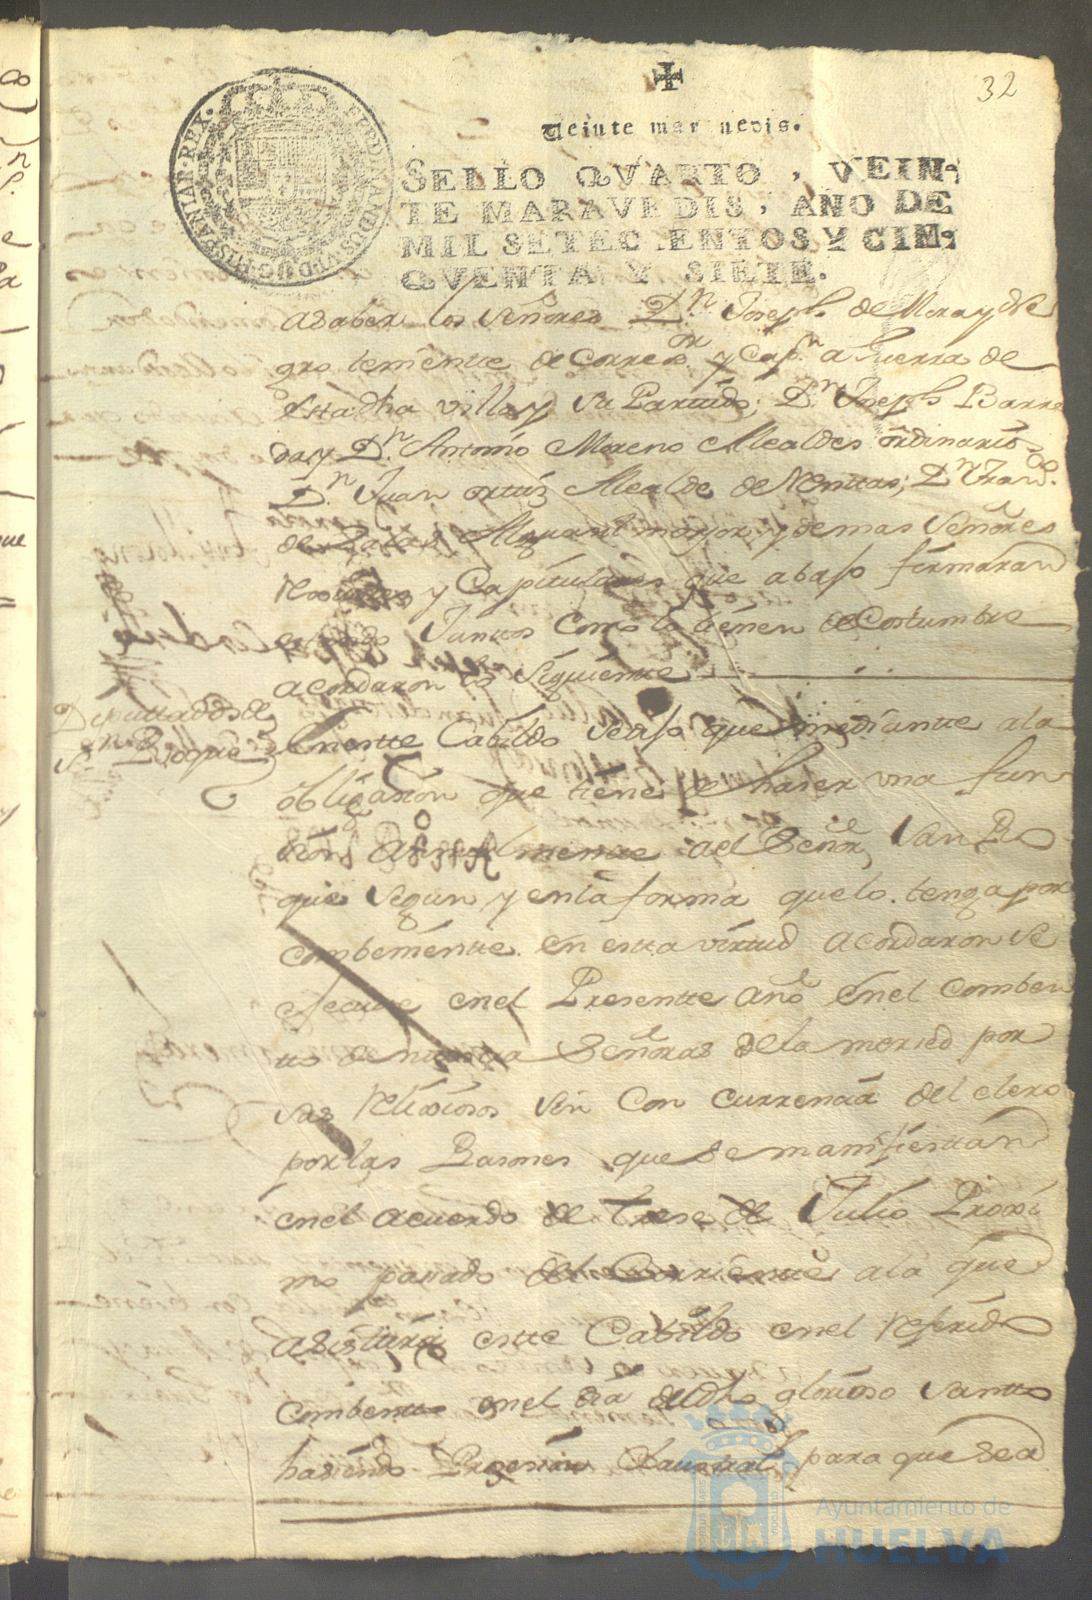 32
Veinte maravedis.
SELLO QVARTO, VEIN-
TE MARAVEDIS, AÑO DE
MIL SETECIENTOS Y CIN-
QVENTA Y SIETE.
FERDINANDUS VI D G HISPANIAR REX
asaber los señores Dn Joseph de Mora y Ne
gro teniente de Correor y Capn a Guerra de
esta dha villa y su Partido; Dn Joseph Barre
da y Dn Antonio Moreno Alcaldes ordinarios
Dn Juan ortiz Alcalde de Mesttas; Dn Franco
de Alguasil mayor y demas señores
y Capitulares que abajo firmaran
estando Juntos como lo tienen de Costumbre
acordaron lo siguiente
Diputtados de
Sn Roque
Eneste Cabildo se dijo que mediante ala
obligasion que tiene de haser una fun
sion anualmente al Señor San Ro
que segun y enla forma quelo tenga por
combeniente en esta virtud acordaron se
ejecute enel Presente año Enel Comben
to de nuestra Señoras dela mersed por
sus Relixiosos sin Con currencia del clero
por las Rasones que se manifiestan
enel acuerdo de trese de Julio Proxi
mo pasado del Corriente ala que
asistira este Cabildo enel referido
Combento enel dia de dho glorioso santto
hasiendo Prosesion Claustral para que sea
Ayuntamiento de
HUELVA